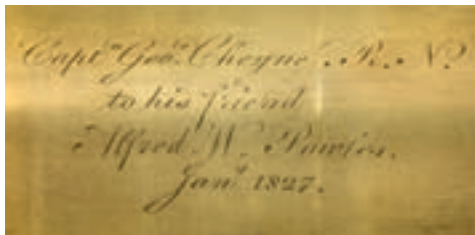 Capt.ⁿ Geo.ᵉ Cheyne. R. N.
to his friend
Alfred W.
Jan.ʸ 1827.